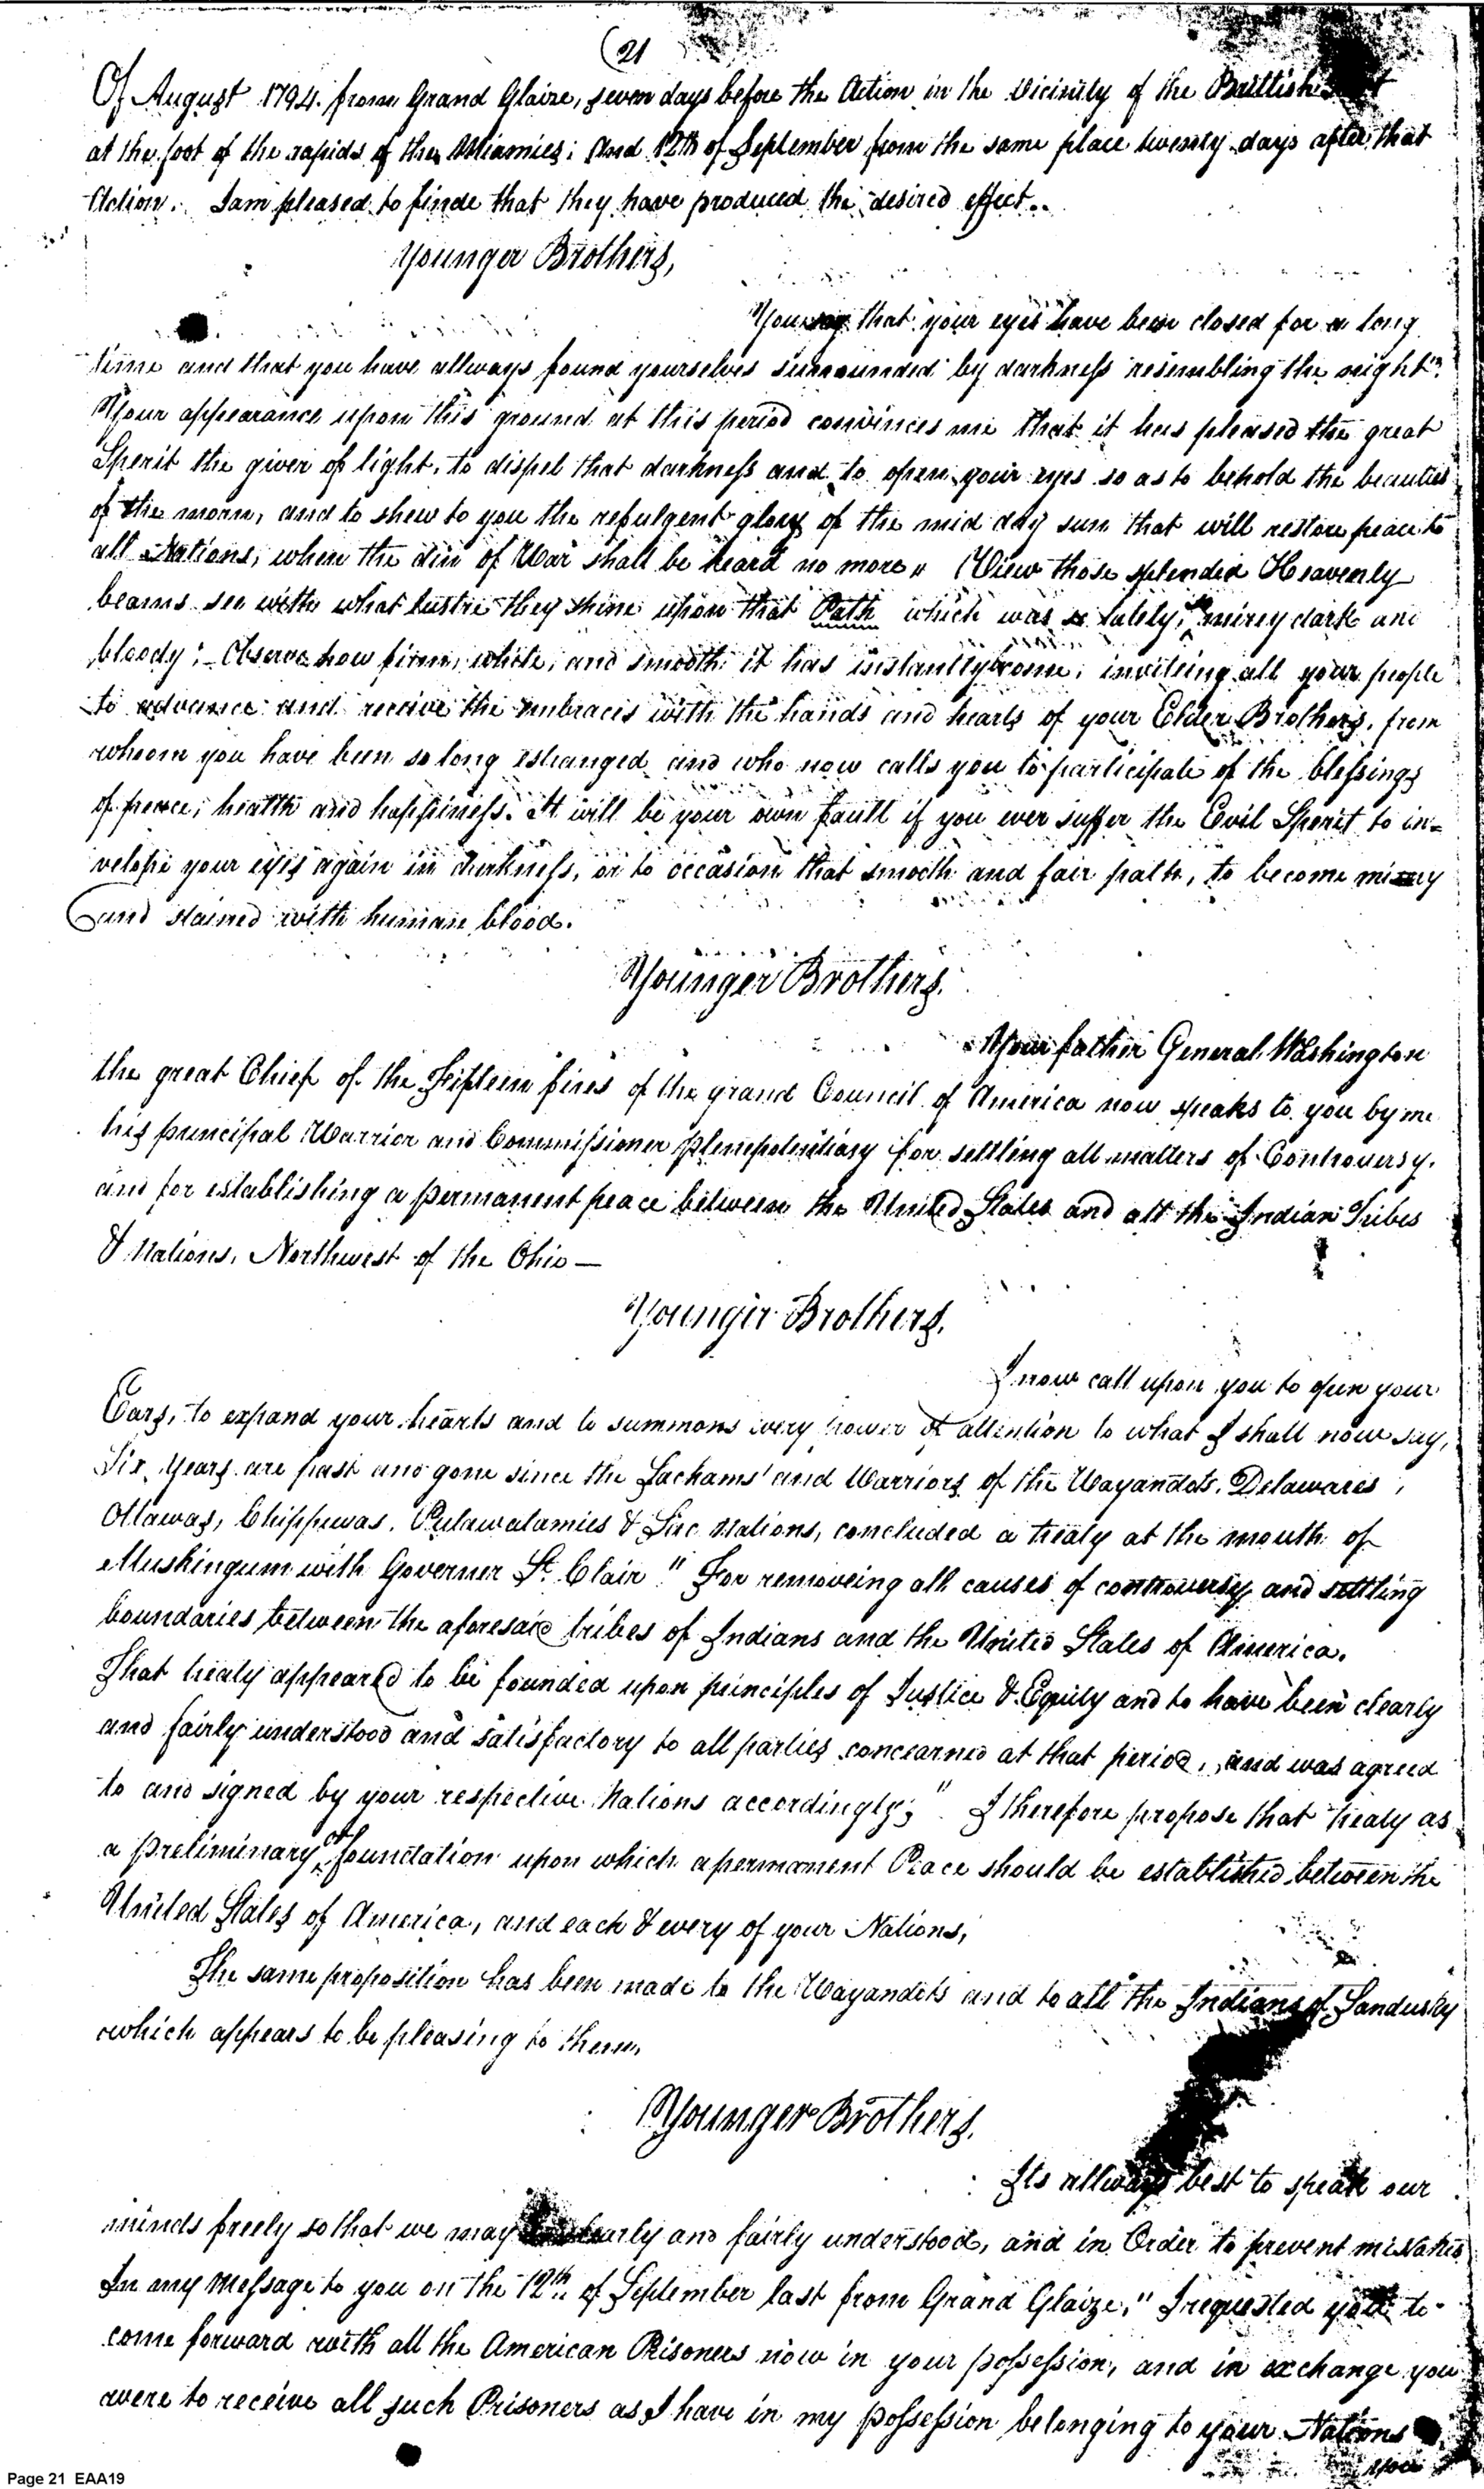 (21
Of August 1794. from Grand Glaize, seven days before the Action in the Vicinity of the Brittish
at the foot of the rapids of the Miamies; And 12th of September from the same place twenty days after that
Action. I am pleased to finde that they have produced the desired effect..
Younger Brothers,
You say that your eyes have been closed for a long
time and that you have allways found yourselves surrounded by darkness resembling the night".
Your appearance upon this ground at this period convinces me that it has pleased the great
Sperit the giver of light, to dispel that darkness and to open your eyes so as to behold the beauties
of the morn, and to shew to you the refulgent glory of the mid day sun that will restore peace to
all Nations, when the din of War shall be heard no more " View those splendid Heavenly
beams see with what lustre they shine upon that Path which was so lately, mirey dark and
bloody; Observe how firm, white, and smooth it has instantly become, inviteing all your people
to advance and receive the embraces with the hands and hearts of your Elder Brothers, from
whoom you have been so long estranged and who now calls you to participate of the blessings
of peace, health and happiness. It will be your own fault if you ever suffer the Evil Sperit to in=
velope your eyes again in darkness, or to occasion that smooth and fair path, to become mirey
and stained with human blood.
Younger Brothers.
Your father General Washington
the great Chief of the Fifteen fires of the grand Council of America now speaks to you by me
his principal Warrior and Commissioner plenepotentiary for settling all matters of Controversy.
and for establishing a permanent peace between the United States and all the Indian Tribes
& Nations, Northwest of the Ohio —
Younger Brothers,
I now call upon you to open your
Ears, to expand your hearts and to summons every power of attention to what I shall now say,
Six Years are past and gone since the Sachams and Warriors of the Wayandots, Delawares,
Ottawas, Chippewas, Putawatamies & Sac Nations, concluded a treaty at the mouth of
Muskingum with Governer St. Clair " For removeing all causes of controversy and settling
boundaries between the aforesaid tribes of Indians and the United States of America.
That treaty appeared to be founded upon principles of Justice & Equity and to have been clearly
and fairly understood and satisfactory to all parties concearned at that period, and was agreed
to and signed by your respective Nations accordingly;" I therefore propose that treaty as
a preliminary or foundation upon which a permanent Peace should be established between the
United States of America, and each & every of your Nations,
The same proposition has been made to the Wayandots and to all the Indians of Sandusky
which appears to be pleasing to them,
Younger Brothers.
Its allways best to speak our
minds freely so that we may clearly and fairly understood, and in Order to prevent mistakes
In my Message to you on the 12th of September last from Grand Glaize," I requested you to
come forward with all the American Prisoners now in your possession, and in exchange you
were to receive all such Prisoners as I have in my possession belonging to your Nations
you
Page 21 EAA19